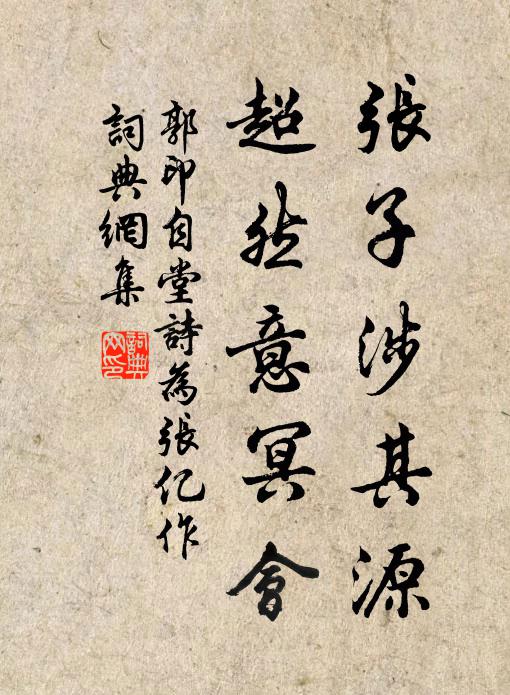 張子涉其源
超然意冥會
郭印自堂詩為張仡作
詞典網集
詞典網印